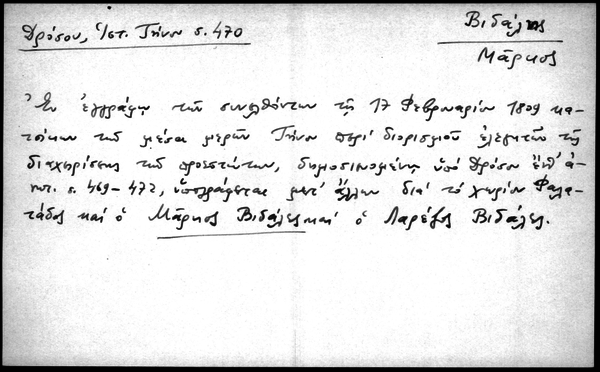 Δρόσου, Ἱστ. Τήνου σ. 470
Βιδάλης
Μᾶρκος
Ἐν ἐγγράφῳ τῶν συνελθόντων τῇ 17 Φεβρουαρίου 1809 κα-
τοίκων τῶν μέσα μερῶν Τήνου περὶ διορισμοῦ ἐλεγκτῶν τῆς
διαχειρίσεως τῶν προεστώτων, δημοσιευομένῳ ὑπὸ Δρόσου ἔνθ' ἀ-
νωτ. σ. 469-472, ὑπογράφεται μετ' ἄλλων διὰ τὸ χωρίον Φαλα-
τάδος καὶ ὁ Μᾶρκος Βιδάλες καὶ ὁ Λαρέζος Βιδάλες.